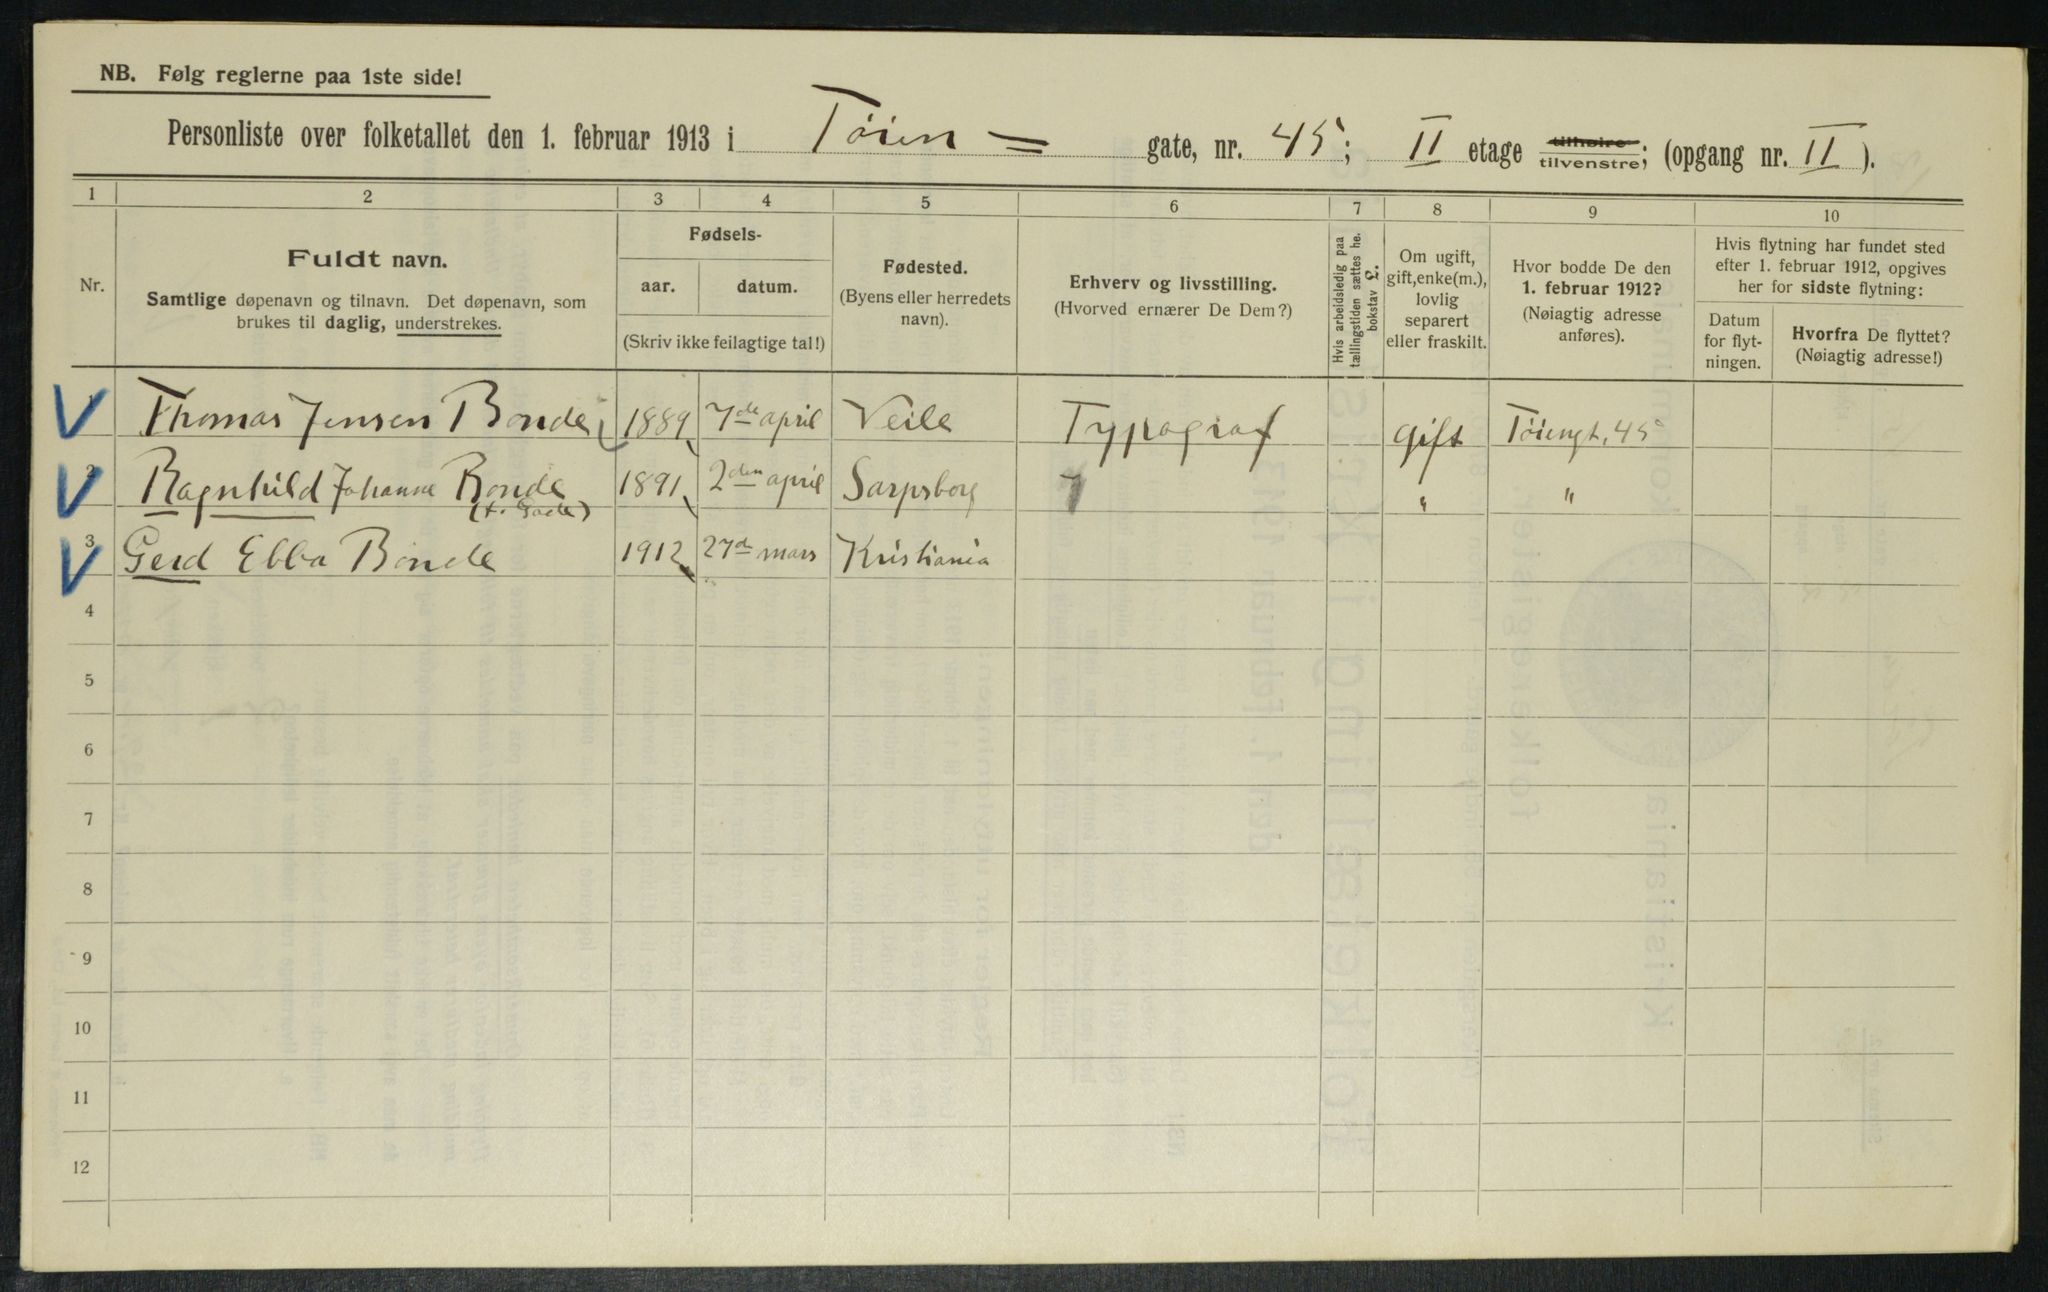 NB. Følg reglerne paa 1ste side!
Personliste over folketallet den 1. februar 1913 i Tøien = gate, nr. 45; II etage tilhøire tilvenstre; (opgang nr. II ).
1 2 3 4 5 6 7 8 9 10
Nr.
Fuldt navn.
Samtlige døpenavn og tilnavn. Det døpenavn, som
brukes til daglig, understrekes.
Fødsels-
aar. datum.
(Skriv ikke feilagtige tal!)
Fødested.
(Byens eller herredets
navn).
Erhverv og livsstilling.
(Hvorved ernærer De Dem?)
Hvis arbeidsledig paa
tællingstiden sættes he.
bokstav L.
Om ugift,
gift, enke(m.),
lovlig
separert
eller fraskilt.
Hvor bodde De den
1. februar 1912?
(Nøiagtig adresse
anføres).
Hvis flytning har fundet sted
efter 1. februar 1912, opgives
her for sidste flytning:
Datum
for flyt-
ningen.
Hvorfra De flyttet?
(Nøiagtig adresse!)
1 Thomas Jensen Bonde 1889 7de april Veile Typograf gift Tøiengt. 45
2 Ragnhild Johanne Bonde 1891 2den april Sarpsborg " "
3 Gerd Ebba Bonde 1912 27de mars Kristiania
4
5
6
7
8
9
10
11
12